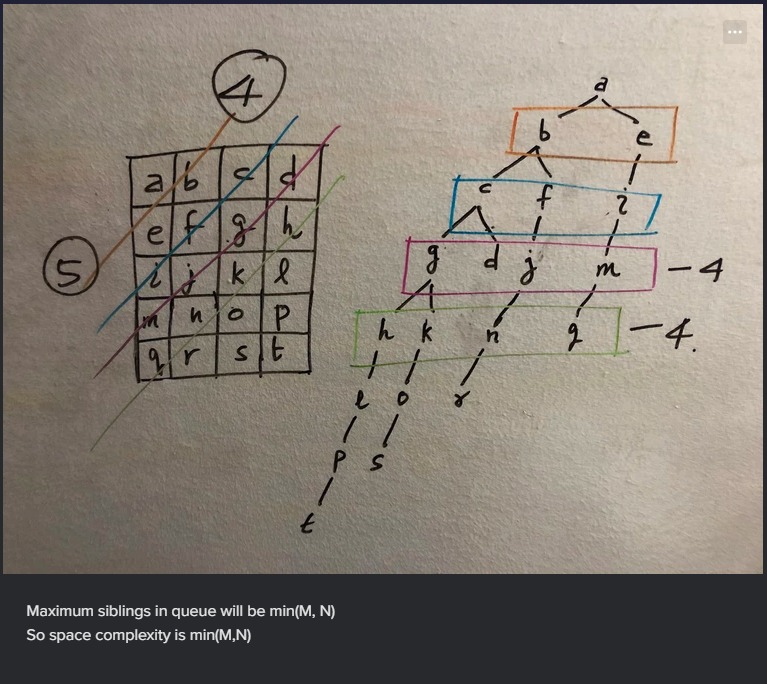 4
5
a b c d
e f g h
i j k l
m n o p
q r s t
a
b e
c f i
g d j m – 4
h k n q – 4.
l o r
p s
t
Maximum siblings in queue will be min(M, N)
So space complexity is min(M,N)